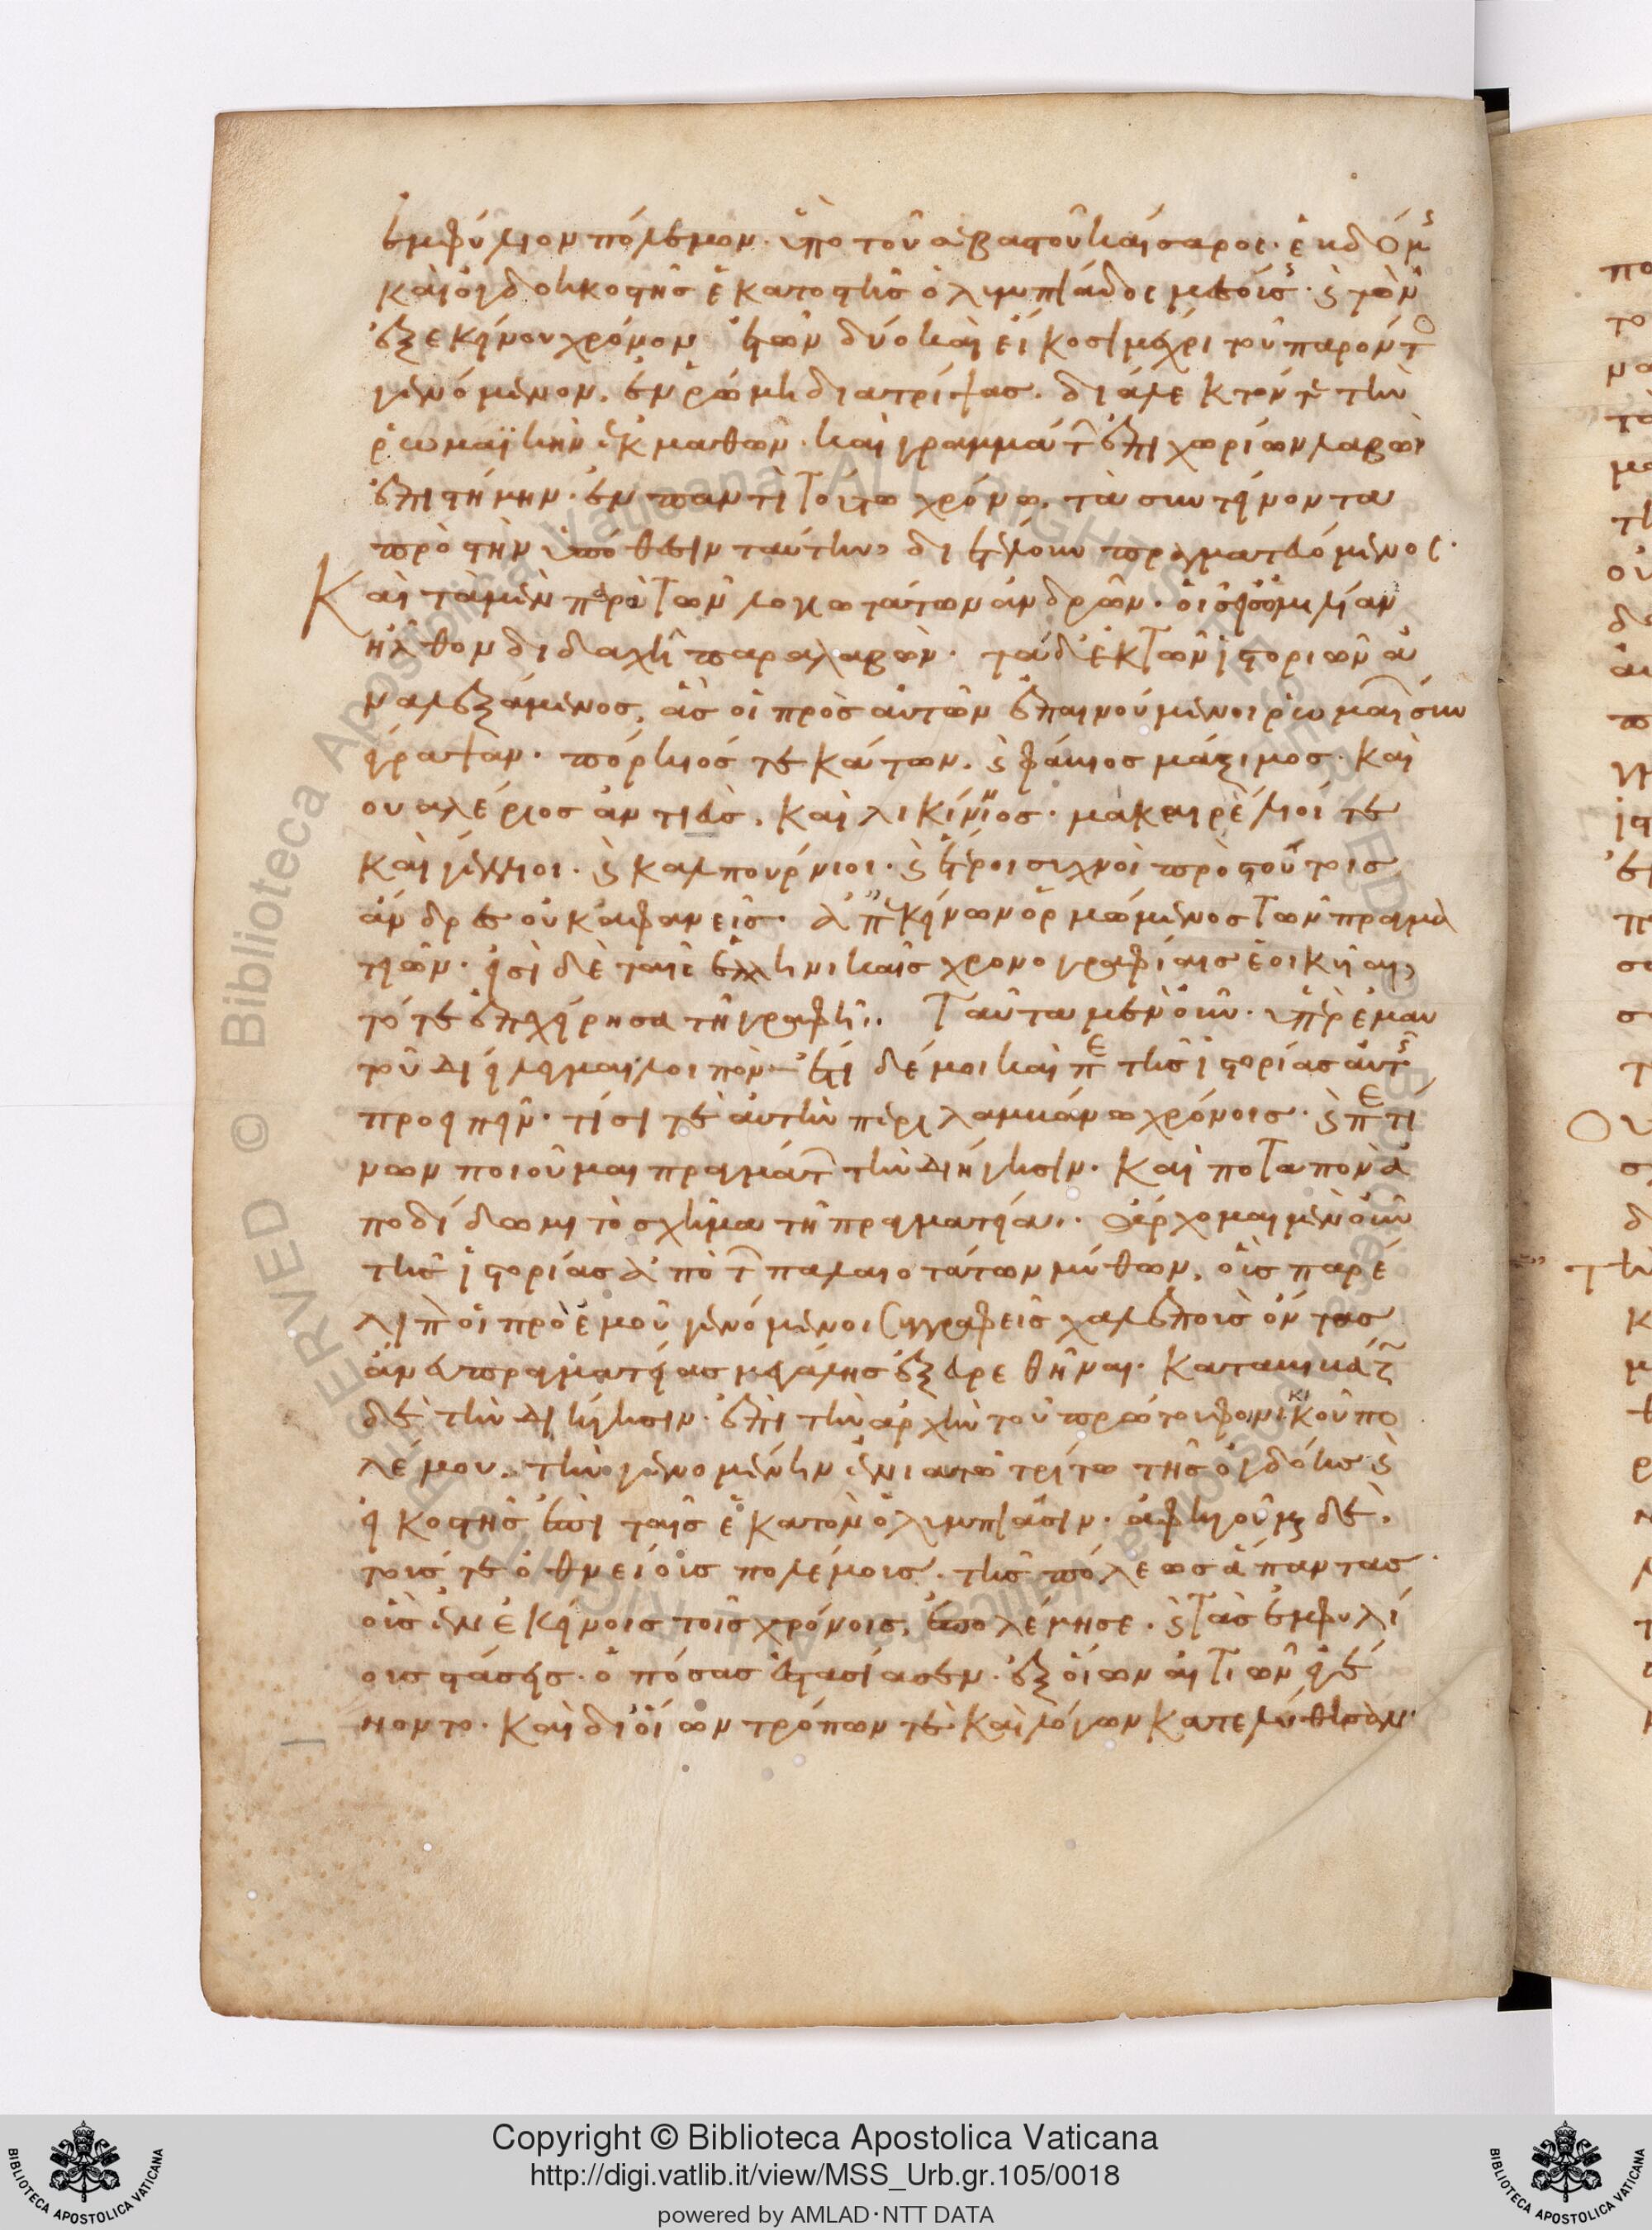 ἐμφύλιον πόλεμον· ὑπὸ τοῦ σεβαστοῦ καίσαρος· ἑβδόμης
καὶ ὀγδοηκοστῆς ἑκατοστῆς ὀλυμπιάδος μεσούσης· καὶ τὸν
ἐξ ἐκείνου χρόνον ἐτῶν δύο καὶ εἴκοσι μέχρι τοῦ παρόντος
γενόμενον, ἐν ῥώμη διατρίψας. διάλεκτόν τε τὴν
ῥωμαϊκὴν ἐκμαθὼν· καὶ γραμμάτων ἐπιχωρίων λαβὼν
ἐπιστήμην· ἐν παντὶ τούτω χρόνω, τὰ συντείνοντα
πρὸς τὴν ὑπόθεσιν ταύτην, διετέλουν πραγματευόμενος·
Καὶ τὰ μὲν παρὰ τῶν λογιωτάτων ἀνδρῶν· οἷς εἰς ὁμιλίαν
ἦλθον διδαχῆ παραλαβὼν· τὰ δ' ἐκ τῶν ἱστοριῶν ἀ
ναλεξάμενος, ἃς οἱ πρὸς αὐτῶν ἐπαινούμενοι ῥωμαίων συν
έγραψαν· πόρκιός τε κάτων. καὶ φάβιος μάξιμος· καὶ
οὐαλέριος ἀντιεὺς, καὶ λικίννιος μάκερ αἴλιοί τε
καὶ γέλλιοι· καὶ καλπούρνιοι· καὶ ἕτεροι συχνοὶ πρὸς τούτοις
ἄνδρες οὐκ ἀφανεῖς· ἀπ' ἐκείνων ὁρμώμενος τῶν πραγμα
τειῶν· εἰσὶ δὲ ταῖς ἑλληνικαῖς χρονογραφίαις ἐοικυῖαι,
τότε ἐπεχείρησα τῆ γραφῆ. Ταῦτα μὲν οὖν· ὑπὲρ ἐμαυ
τοῦ διείλεγμαι· λοιπὸν ἔτι δέ μοι καὶ περὶ τῆς ἱστορίας αὐτῆς
προσειπεῖν· τίσι τε αὐτὴν περιλαμβάνω χρόνοις· καὶ περὶ τί
νων ποιοῦμαι πραγμάτων τὴν διήγησιν· καὶ ποταπὸν ἀ
ποδίδωμι τὸ σχῆμα τῆ πραγματεία. ἄρχομαι μὲν οὖν
τῆς ἱστορίας ἀπὸ τῶν παλαιοτάτων μύθων, οὓς παρέ
λιπον οἱ πρὸ ἐμοῦ γενόμενοι συγγραφεῖς χαλεποὺς ὄντας
ἄνευ πραγματείας μεγάλης ἐξευρεθῆναι. καταβιβάζω
δὲ τὴν διήγησιν· ἐπὶ τὴν ἀρχὴν τοῦ πρώτου φοινικικοῦ πο
λέμου. τὴν γενομένην ἐνιαυτῶ τρίτω τῆς ὀγδόης καὶ
εἰκοστῆς ἐπὶ ταῖς ἑκατὸν ὀλυμπιάσιν· ἀφηγοῦμαι δὲ.
τούς τε ὀθνείους πολέμους τῆς πόλεως ἅπαντας·
οὓς ἐν ἐκείνοις τοῖς χρόνοις, ἐπολέμησε. καὶ τὰς ἐμφυλί
ους στάσεις· ὁπόσας ἐστασίασεν· ἐξ οἵων αἰτιῶν ἐγέ
νοντο· καὶ δι' οἵων τρόπων τε καὶ λόγων κατελύθησαν·
Copyright © Biblioteca Apostolica Vaticana
http://digi.vatlib.it/view/MSS_Urb.gr.105/0018
powered by AMLAD·NTT DATA